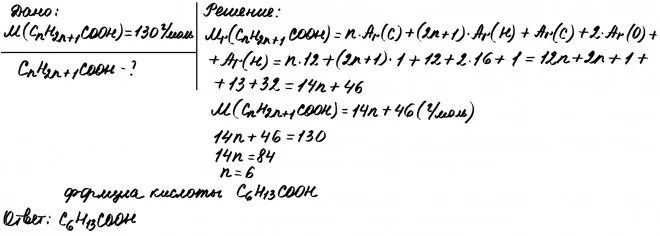 Дано:
M(CnH2n+1COOH)=130 г/моль
CnH2n+1COOH-?
Решение:
Mr(CnH2n+1COOH)=n·Ar(C)+(2n+1)·Ar(H)+Ar(C)+2·Ar(O)+
+Ar(H)=n·12+(2n+1)·1+12+2·16+1=12n+2n+1+
+13+32=14n+46
M(CnH2n+1COOH)=14n+46(г/моль)
14n+46=130
14n=84
n=6
формула кислоты C6H13COOH
Ответ: C6H13COOH